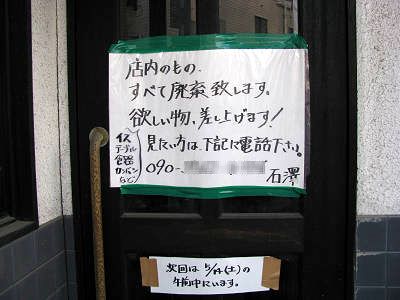 店内のもの、
すべて廃棄致します。
欲しい物、差し上げます!
見たい方は、下記に電話下さい。
イス
テーブル
食器
カンバン
など
090-
石澤
次回は5/14(土)の
午前中にいます。